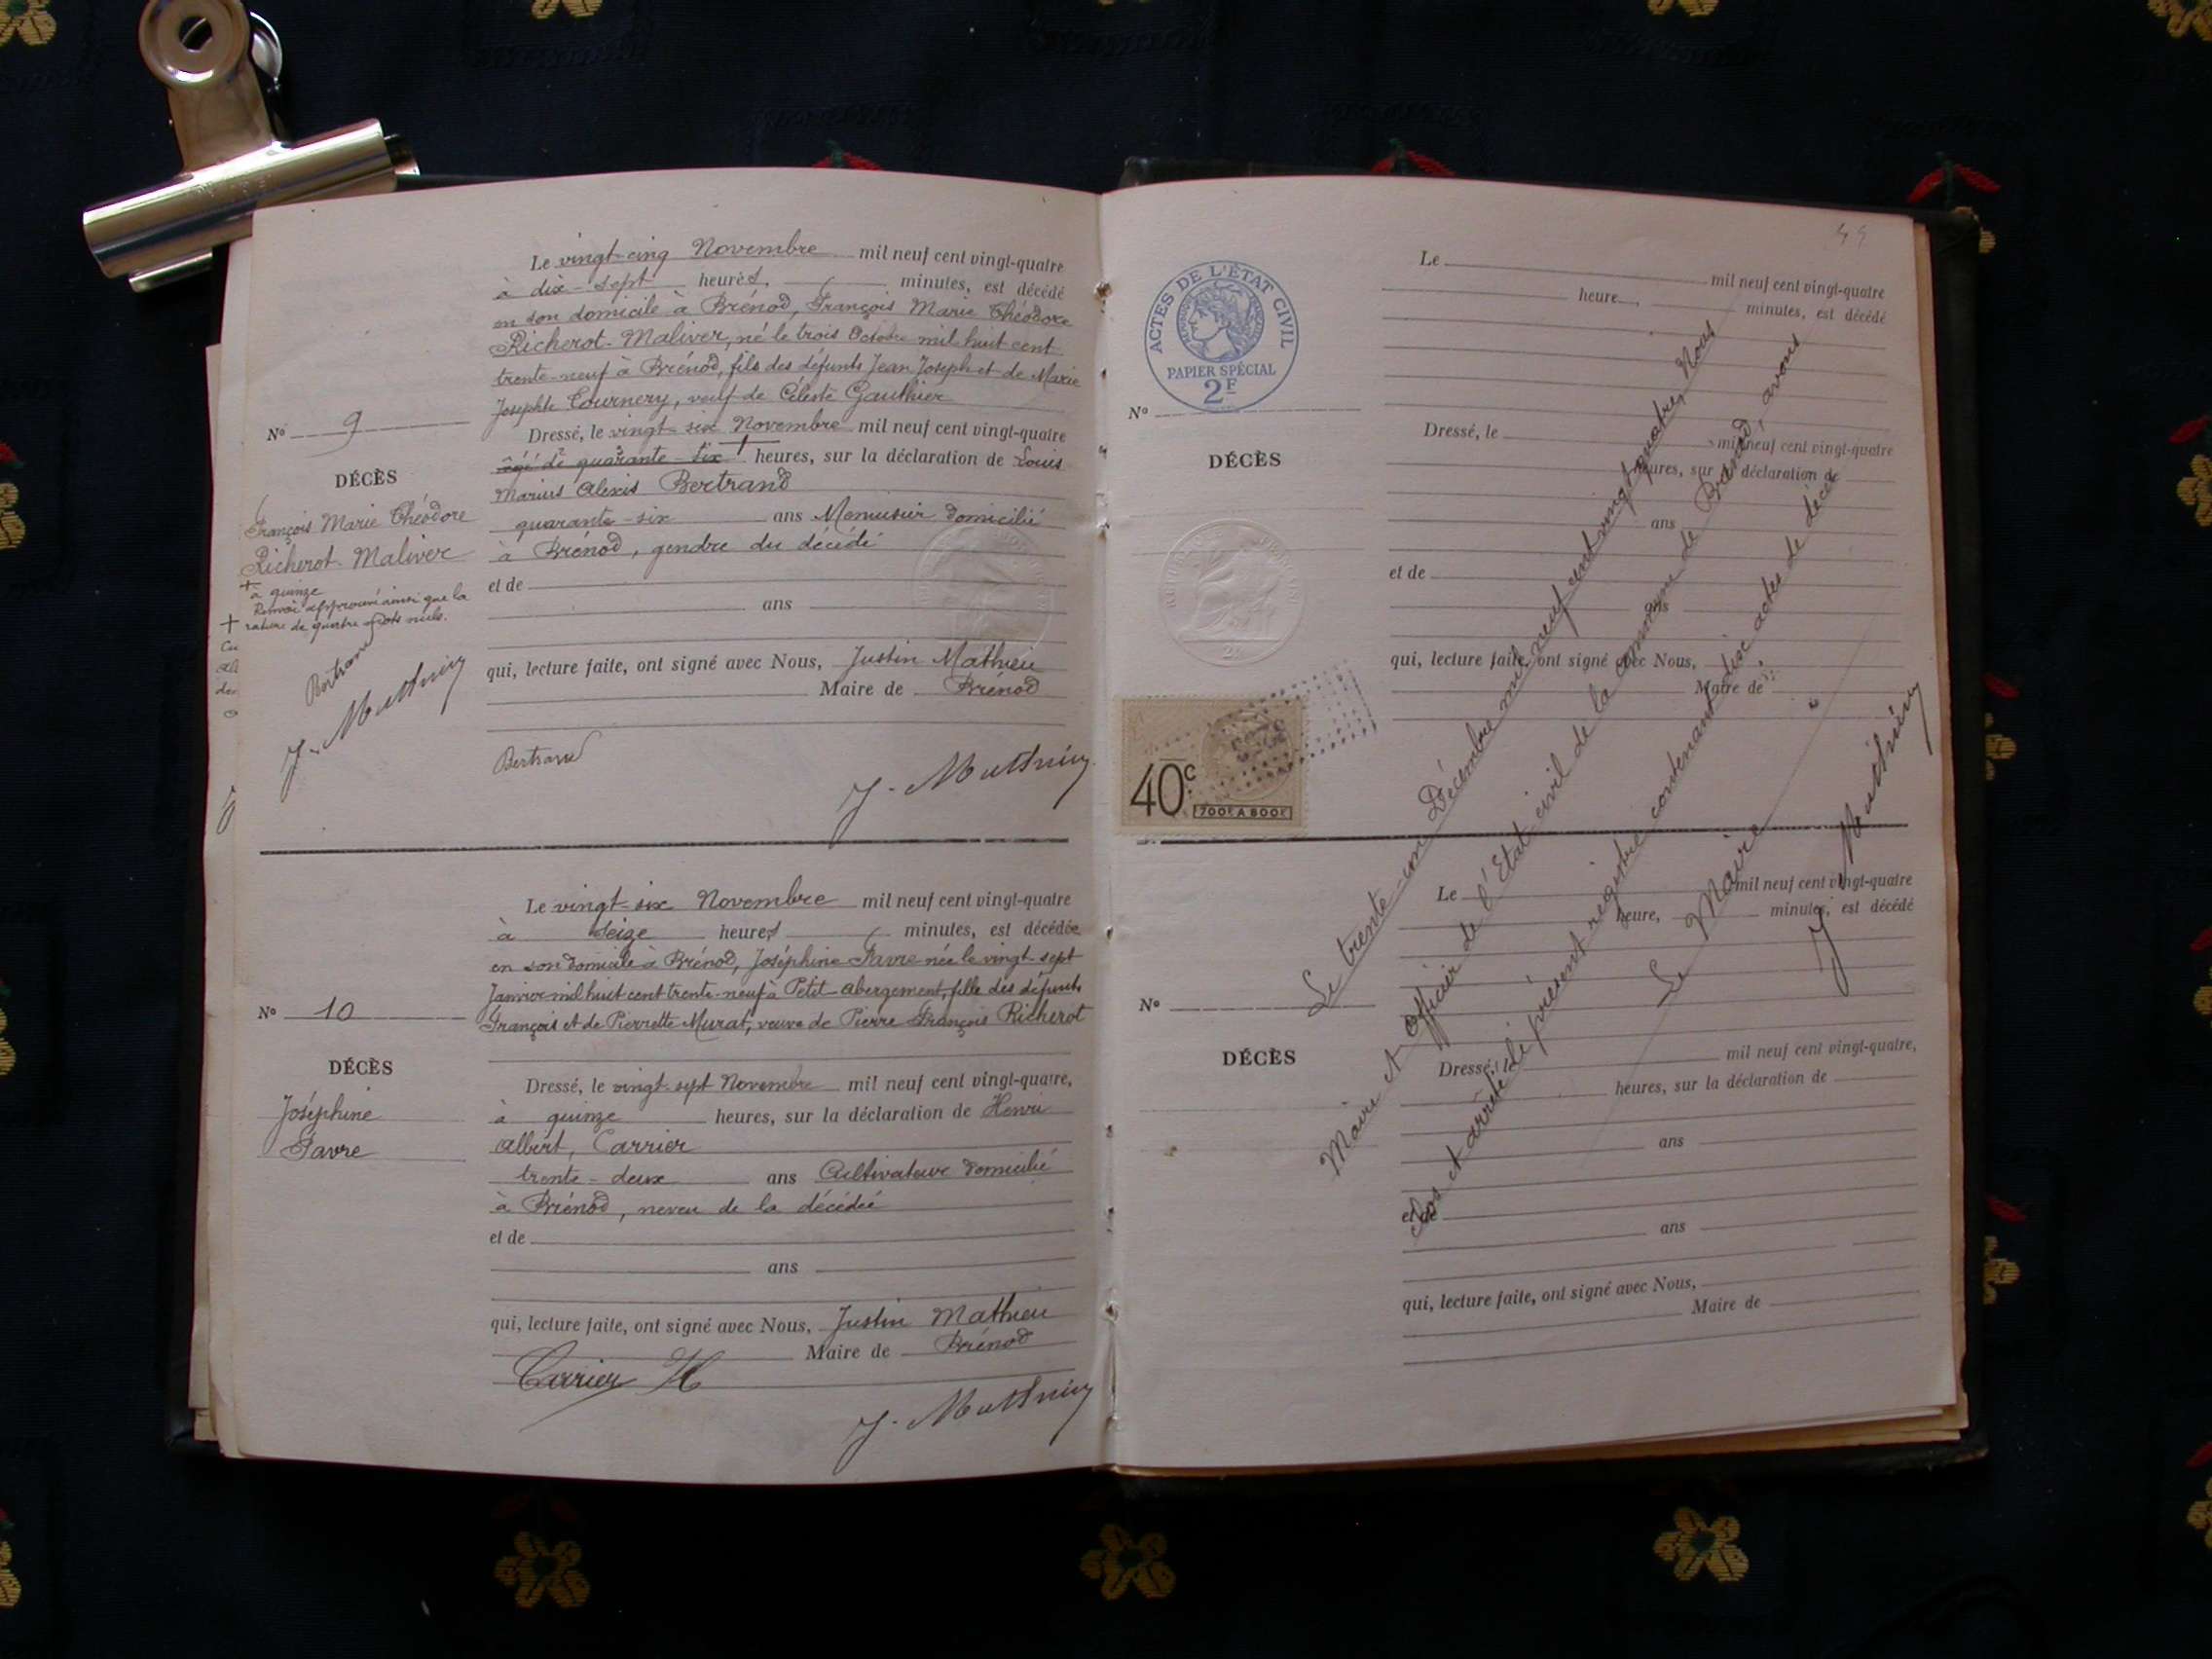 Le vingt-cinq Novembre mil neuf cent vingt-quatre
à dix-sept heures, minutes, est décédé
en son domicile à Brénod, François Marie Théodore
Richerot-Maliver, né le trois Octobre mil huit cent
trente-neuf à Brénod, fils des défunts Jean Joseph et de Marie
Josephte Tournery, veuf de Céleste Gauthier
Nº 9
Dressé, le vingt-six Novembre mil neuf cent vingt-quatre
âgé de quarante-six + heures, sur la déclaration de Louis
DÉCÈS
Marius Alexis Bertrand
François Marie Théodore
quarante-six ans Menuisier domicilié
Richerot-Maliver
à Brénod, gendre du décédé
+ à quinze
et de
Renvoi approuvé ainsi que la
ans
+ rature de quatre mots nuls.
Bertrand
J. Mathieu
qui, lecture faite, ont signé avec Nous, Justin Mathieu
Maire de Brénod
Bertrand
J. Mathieu
Le vingt-six Novembre mil neuf cent vingt-quatre
à seize heures minutes, est décédée
en son domicile à Brénod, Joséphine Favre née le vingt-sept
Janvier mil huit cent trente-neuf à Petit-Abergement, fille des défunts
François et de Pierrette Murat, veuve de Pierre François Richerot
Nº 10
DÉCÈS
Joséphine
Favre
Dressé, le vingt-sept Novembre mil neuf cent vingt-quatre,
à quinze heures, sur la déclaration de Henri
Albert, Carrier
trente-deux ans Cultivateur domicilié
à Brénod, neveu de la décédée
et de
ans
qui, lecture faite, ont signé avec Nous, Justin Mathieu
Maire de Brénod
Carrier H
J. Mathieu
ACTES DE L'ÉTAT CIVIL
PAPIER SPÉCIAL
2F
Le mil neuf cent vingt-quatre
heure, minutes, est décédé
Nº
DÉCÈS
Dressé, le mil neuf cent vingt-quatre
heures, sur la déclaration de
ans
et de
ans
qui, lecture faite, ont signé avec Nous,
Maire de
40c
700F A 800F
Le trente-un Décembre mil neuf cent vingt-quatre, Nous
Maire et officier de l'Etat civil de la commune de Brénod, avons
clos et arrêté le présent registre contenant dix actes de décès.
Le Maire
J Mathieu
Le mil neuf cent vingt-quatre
heure, minutes, est décédé
Nº
DÉCÈS
Dressé, le mil neuf cent vingt-quatre,
heures, sur la déclaration de
ans
et de
ans
qui, lecture faite, ont signé avec Nous,
Maire de